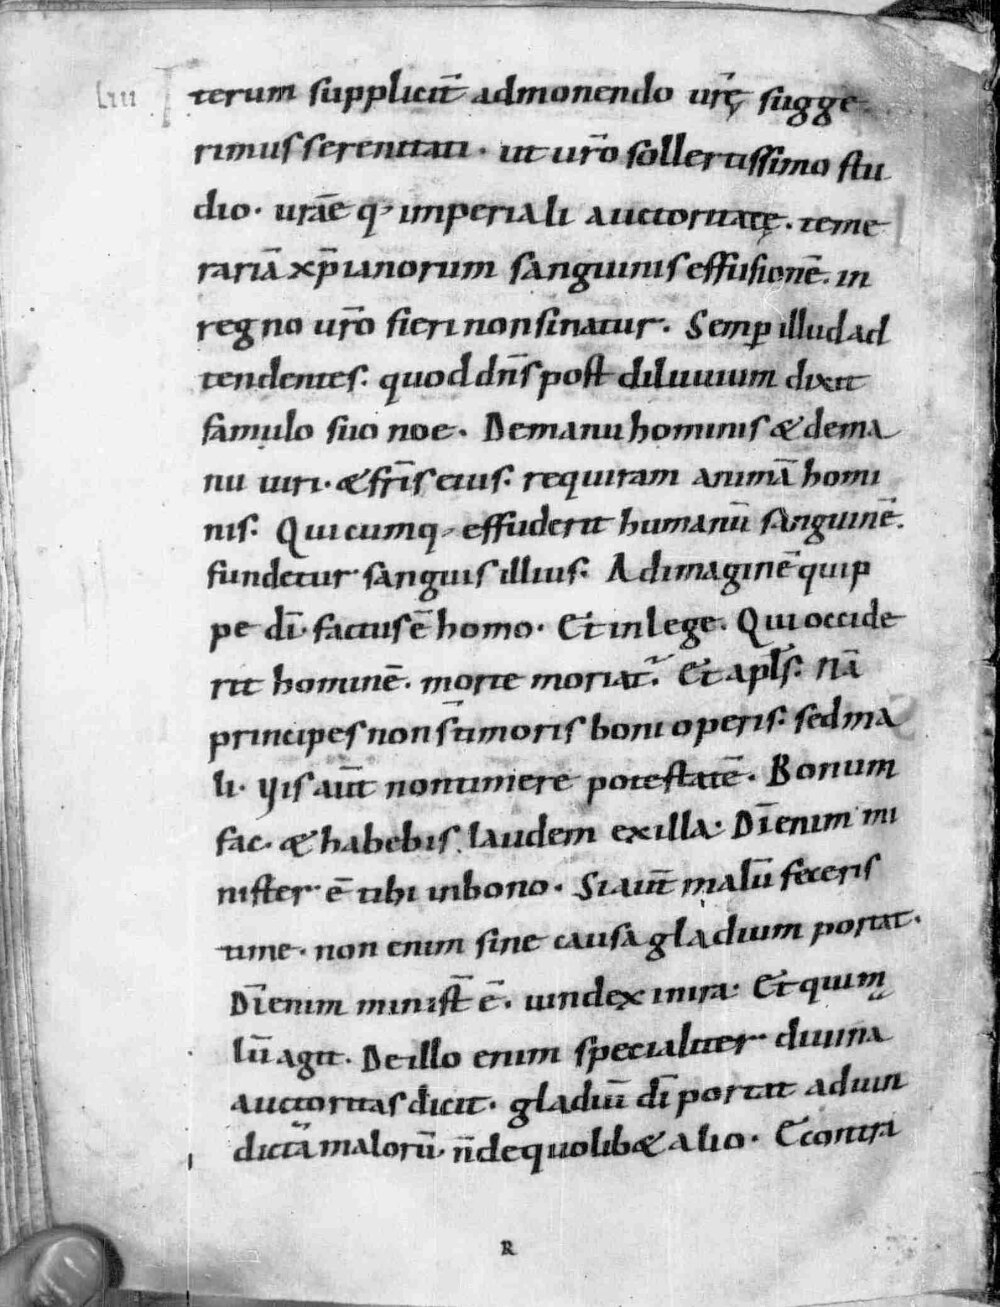 liii Iterum suppliciт̄ admonendo ur̄ę sugge
rimus serenitati · ut ur̄o sollertissimo stu
dio · urāe q; imperiali auctoritatę · teme
rariā xp̄ianorum sanguinis effusionē · in
regno ur̄o fieri non sinatur · Semp̱ illud ad
tendentes · quod dn̄s post diluuium dixit
famulo suo noe · De manu hominis & dema
nu uiri · & fr̄is eius · requiram animā homi
nis · Quicumq; effuderit humanū sanguinē ·
fundetur sanguis illius · Ad imaginē quip
pe dī · factus ē homo · Et in lege · Qui occide
rit hominē · morte moriat̄ · Et apl̄s · Nā
principes non s̄ timoris boni operis · sed ma
li · Uis aūt non timere potestatē · Bonum
fac · & habebis laudem ex illa · Dī enim mi
nister ē tibi in bono · Si aūt malū feceris
time · non enim sine causa gladium portat ·
Dī enim minist̄ ē · uindex in ira · Et qui m
lū agit · De illo enim specialiter diuina
auctoritas dicit · gladiū dī portat ad uin
dictā malorū · n̄ de quolib& alio · Econtra
R